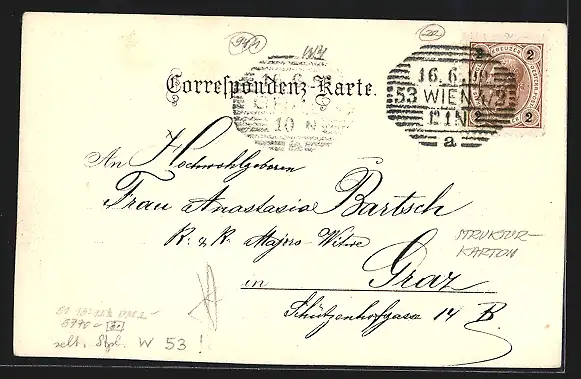 Correspondenz-Karte.
16.6.00
53 WIEN 4/2
12 1N
a
KREUZER
2 2
2 2
10 N
An Hochwohlgeboren
Frau Anastasia Bartsch
K. & K. Majors-Witwe
in Graz
Schützenhofgasse 14 B.
STRUKTUR-
KARTON
selt. Stpl. W 53!